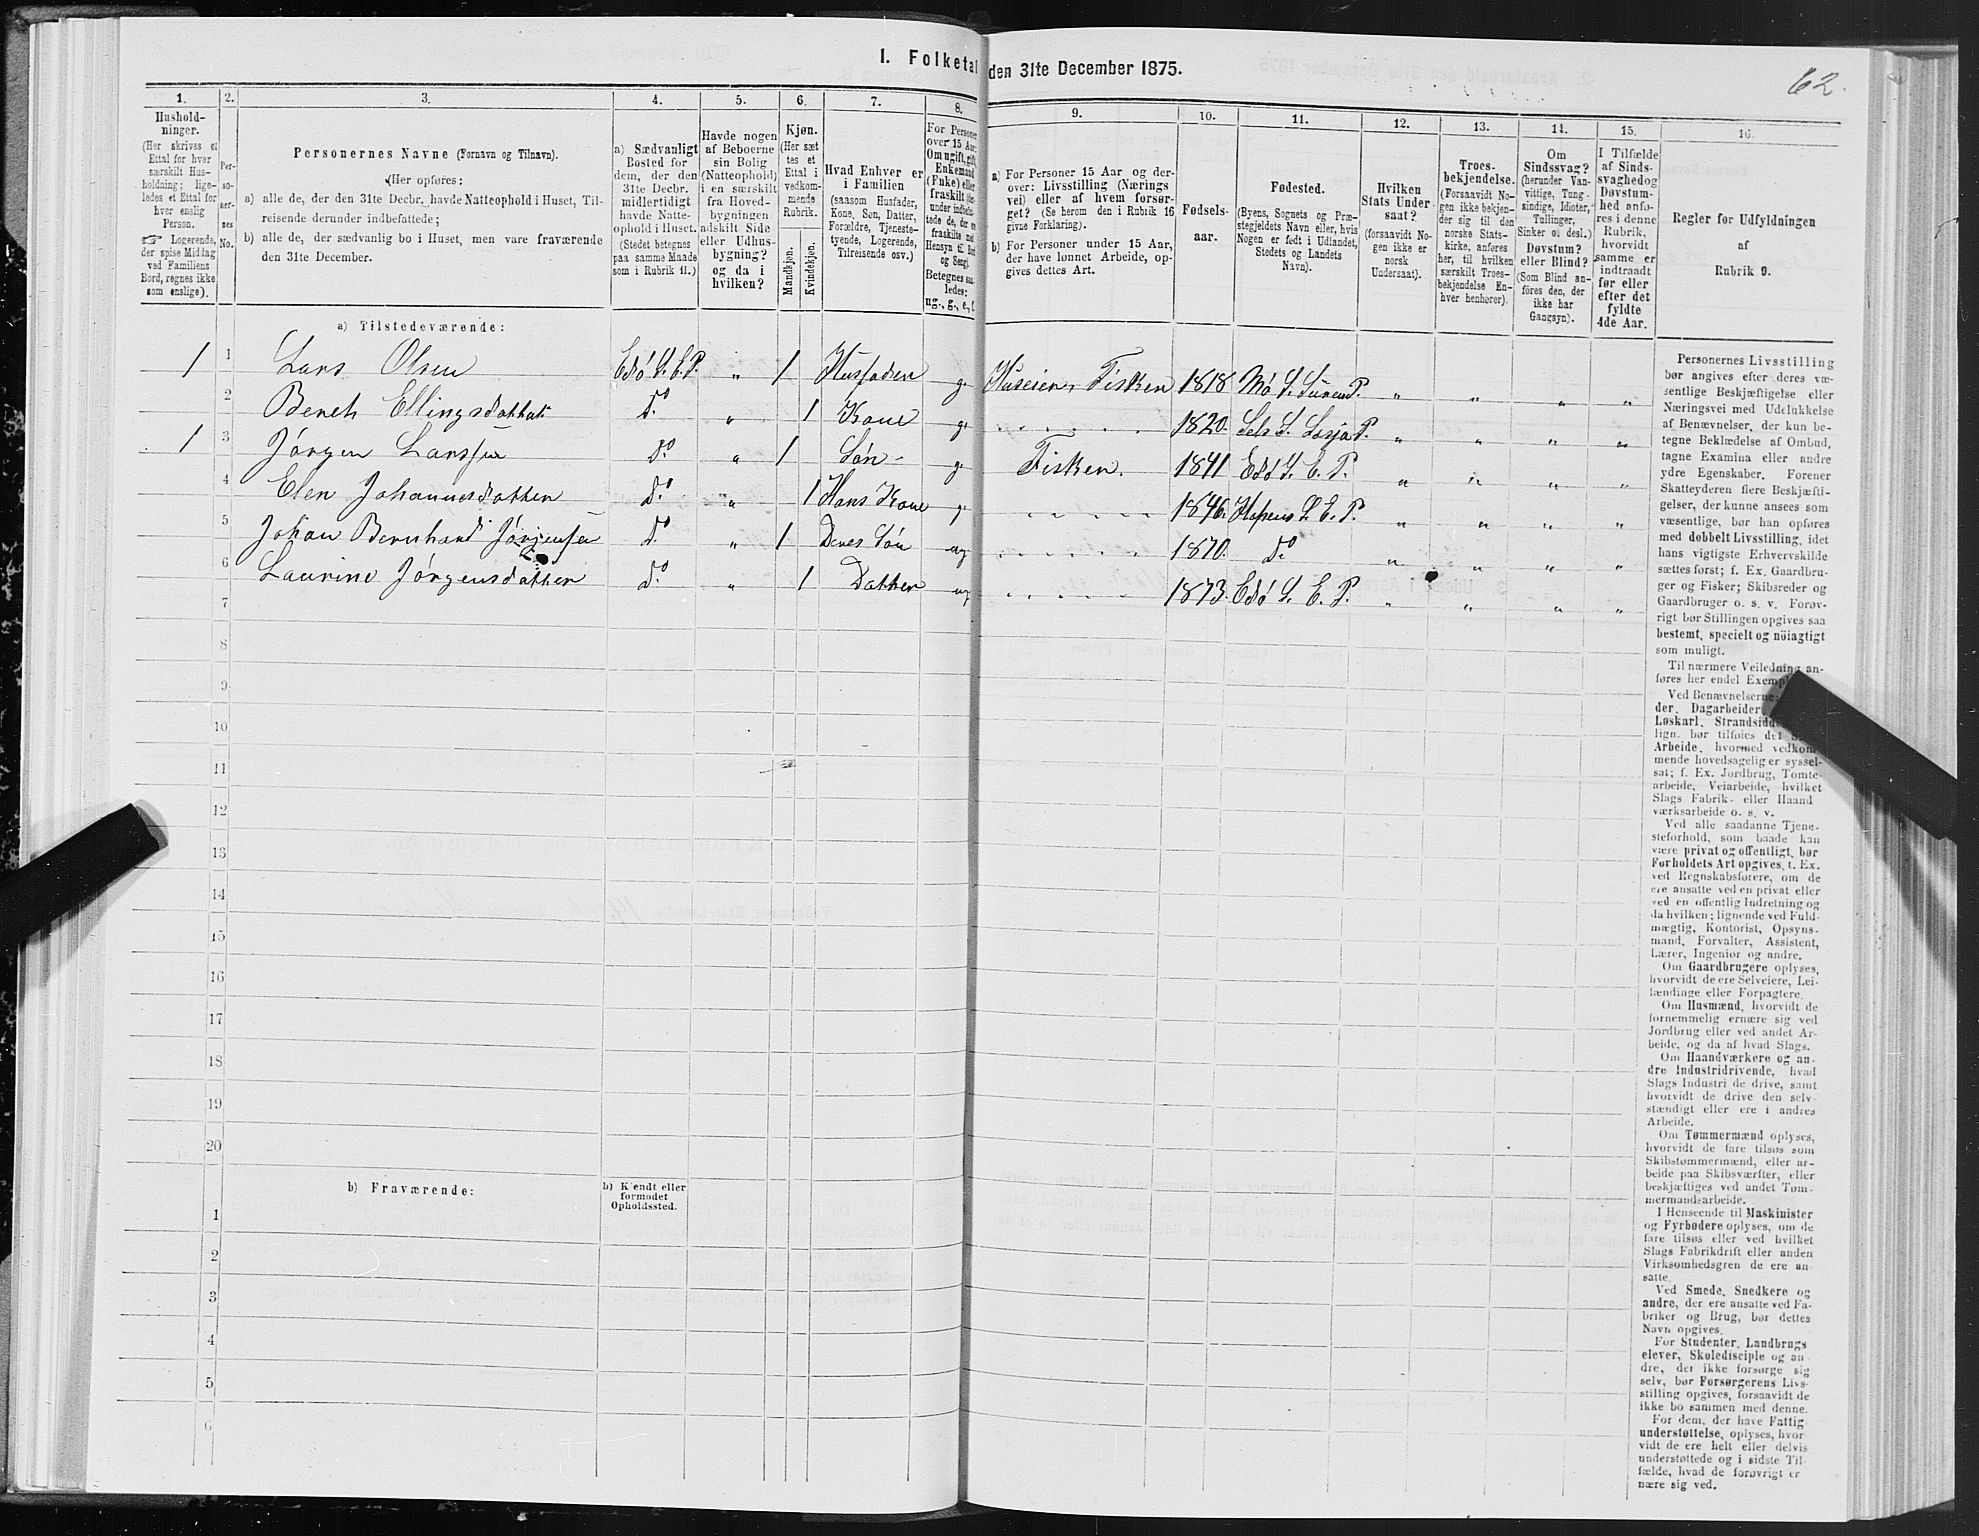 1. Folketal den 31te December 1875.
62.
1.
2.
3.
4.
5.
6.
7.
8.
9.
10.
11.
12.
13.
14.
15.
16.
Hushold-
ninger.
(Her skrives et
Ettal for hver
særskilt Hus-
holdning; lige-
ledes et Ettal for
hver enslig
Person.
☞ Logerende,
der spise Middag
ved Familiens
Bord, regnes ikke
som enslige).
Per-
so-
ner-
nes
No.
Personernes Navne (Fornavn og Tilnavn).
(Her opføres:
a) alle de, der den 31te Decbr. havde Natteophold i Huset, Til-
reisende derunder indbefattede;
b) alle de, der sædvanlig bo i Huset, men vare fraværende
den 31te December.
a) Sædvanligt
Bosted for
dem, der den
31te Decbr.
midlertidigt
havde Natte-
ophold i Huset.
(Stedet betegnes
paa samme Maade
som i Rubrik 11.)
Havde nogen
af Beboerne
sin Bolig
(Natteophold)
i en særskilt
fra Hoved-
bygningen
adskilt Side
eller Udhus-
bygning?
og da i
hvilken?
Kjøn.
(Her sæt
tes et
Ettal i
vedkom-
mende
Rubrik.
Mandkjøn.
Kvindekjøn.
Hvad Enhver er
i Familien
(saasom Husfader,
Kone, Søn, Datter,
Forældre, Tjeneste-
tyende, Logerende,
Tilreisende osv.)
For Personer
over 15 Aar:
Om ugift, gift,
Enkemand
(Enke) eller
fraskilt
Betegnes saa-
ledes:
ug., g., e., f.
a) For Personer 15 Aar og der-
over: Livsstilling (Nærings
vei) eller af hvem forsør-
get? (Se herom den i Rubrik 16
givne Forklaring).
b) For Personer under 15 Aar,
der have lønnet Arbeide, op-
gives dettes Art.
Fødsels-
aar.
Fødested.
(Byens, Sognets og Præ-
stegjeldets Navn eller, hvis
Nogen er født i Udlandet,
Stedets og Landets
Navn).
Hvilken
Stats Under
saat?
(forsaavidt No-
gen ikke er
norsk
Undersaat).
Troes-
bekjendelse.
(Forsaavidt No-
gen ikke bekjen-
der sig til den
norske Stats-
kirke, anføres
her, til hvilken
særskilt Troes-
bekjendelse En-
hver henhører).
Om
Sindssvag?
(herunder Van-
vittige, Tung-
sindige, Idioter,
Tullinger,
Sinker o. desl.)
Døvstum?
eller Blind?
(Som Blind an-
føres den, der
ikke har
Gangsyn).
I Tilfælde
af Sinds-
svaghed og
Døvstum-
hed anfø-
res i denne
Rubrik,
hvorvidt
samme er
indtraadt
før eller
efter det
fyldte
4de Aar.
Regler for Udfyldningen
af
Rubrik 9.
a) Tilstedeværende:
1 1 Lars Olsen Edø S. E. P. „ 1 Husfader g. Huseier, Fisker 1818 Mo S. Suren P. „ „ „ „
2 Bereth Ellingsdatter Do „ 1 Kone g. 1820. Sels S. Lesja P. „ „ „ „
1 3 Jørgen Larssen do „ 1 Søn g. Fisker. 1841 Edø S. E. P. „ „ „ „
4 Elen Johannesdatter do „ 1 Hans Kone g. 1846. Hopens S. E. P. „ „ „ „
5 Johan Bernhard Jørgensen do „ 1 Deres Søn ug 1870. do „ „ „ „
6 Laurine Jørgensdatter do „ 1 Datter ug 1873. Edø S. E. P. „ „ „ „
7
8
9
10
11
12
13
14
15
16
17
18
19
20
b) Fraværende:
b) Kjendt eller
formodet
Opholdssted.
1
2
3
4
5
6
Personernes Livsstilling
bør angives efter deres væ-
sentlige Beskjæftigelse eller
Næringsvei med Udelukkelse
af Benævnelser, der kun be-
tegne Beklædelse af Ombud,
tagne Examina eller andre
ydre Egenskaber. Forener
Skatteyderen flere Beskjæfti-
gelser, der kunne ansees som
væsentlige, bør han opføres
med dobbelt Livsstilling, idet
hans vigtigste Erhvervskilde
sættes først; f. Ex. Gaardbru-
ger og Fisker; Skibsreder og
Gaardbruger o. s. v. Forøv-
rigt bør Stillingen opgives saa
bestemt, specielt og nöiagtigt
som muligt.
Til nærmere Veiledning an-
føres her endel Exempl
Ved Benævnelserne:
der, Dagarbeider,
Løskarl, Strandsidd
lign. bør tilføies det
Arbeide, hvormed vedkom-
mende hovedsagelig er syssel-
sat; f. Ex. Jordbrug, Tomte-
arbeide, Veiarbeide, hvilket
Slags Fabrik- eller Haand
værksarbeide o. s. v.
Ved alle saadanne Tjene-
steforhold, som baade kan
være privat og offentligt, bør
Forholdets Art opgives, t. Ex.
ved Regnskabsførere, om de
ere ansatte ved en privat eller
ved en offentlig Indretning og
da hvilken; lignende ved Fuld-
mægtig, Kontorist, Opsyns-
mand, Forvalter, Assistent,
Lærer, Ingeniør og andre.
Om Gaardbrugere oplyses,
hvorvidt de ere Selveiere, Lei-
lændinge eller Forpagtere.
Om Husmænd, hvorvidt de
fornemmelig ernære sig ved
Jordbrug eller ved andet Ar-
beide, og da af hvad Slags.
Om Haandværkere og an-
dre Industridrivende, hvad
Slags Industri de drive, samt
hvorvidt de drive den selv-
stændigt eller ere i andres
Arbeide.
Om Tømmermænd oplyses,
hvorvidt de fare tilsøs som
Skibstømmermænd, eller ar-
beide paa Skibsværfter, eller
beskjæftiges ved andet Tøm-
mermandsarbeide.
I Henseende til Maskinister
og Fyrbødere oplyses, om de
fare tilsøs eller ved hvilket
Slags Fabrikdrift eller anden
Virksomhedsgren de ere an-
satte.
Ved Smede, Snedkere og
andre, der ere ansatte ved Fa-
briker og Brug, bør dettes
Navn opgives.
For Studenter, Landbrugs
elever, Skoledisciple og an
dre, der ikke forsørge sig
selv, bør Forsørgerens Livs-
stilling opgives, forsaavidt de
ikke bo sammen med denne.
For dem, der have Fattig
understøttelse, oplyses, hvor
vidt de ere helt eller delvis
understøttede og i sidste Til-
fælde, hvad de forøvrigt er
nære sig ved.